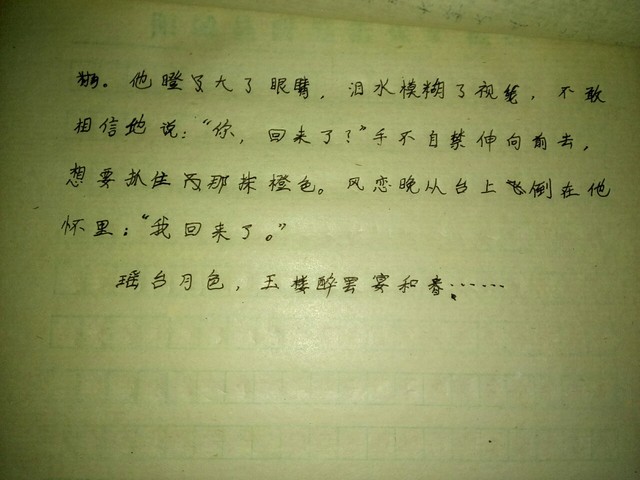 他瞪大了眼睛，泪水模糊了视线，不敢
相信地说：“你，回来了？”手不自禁伸向前去，
想要抓住那抹橙色。风恋晚从台上倒在他
怀里：“我回来了。”
瑶台月色，玉楼醉罢宴和春……